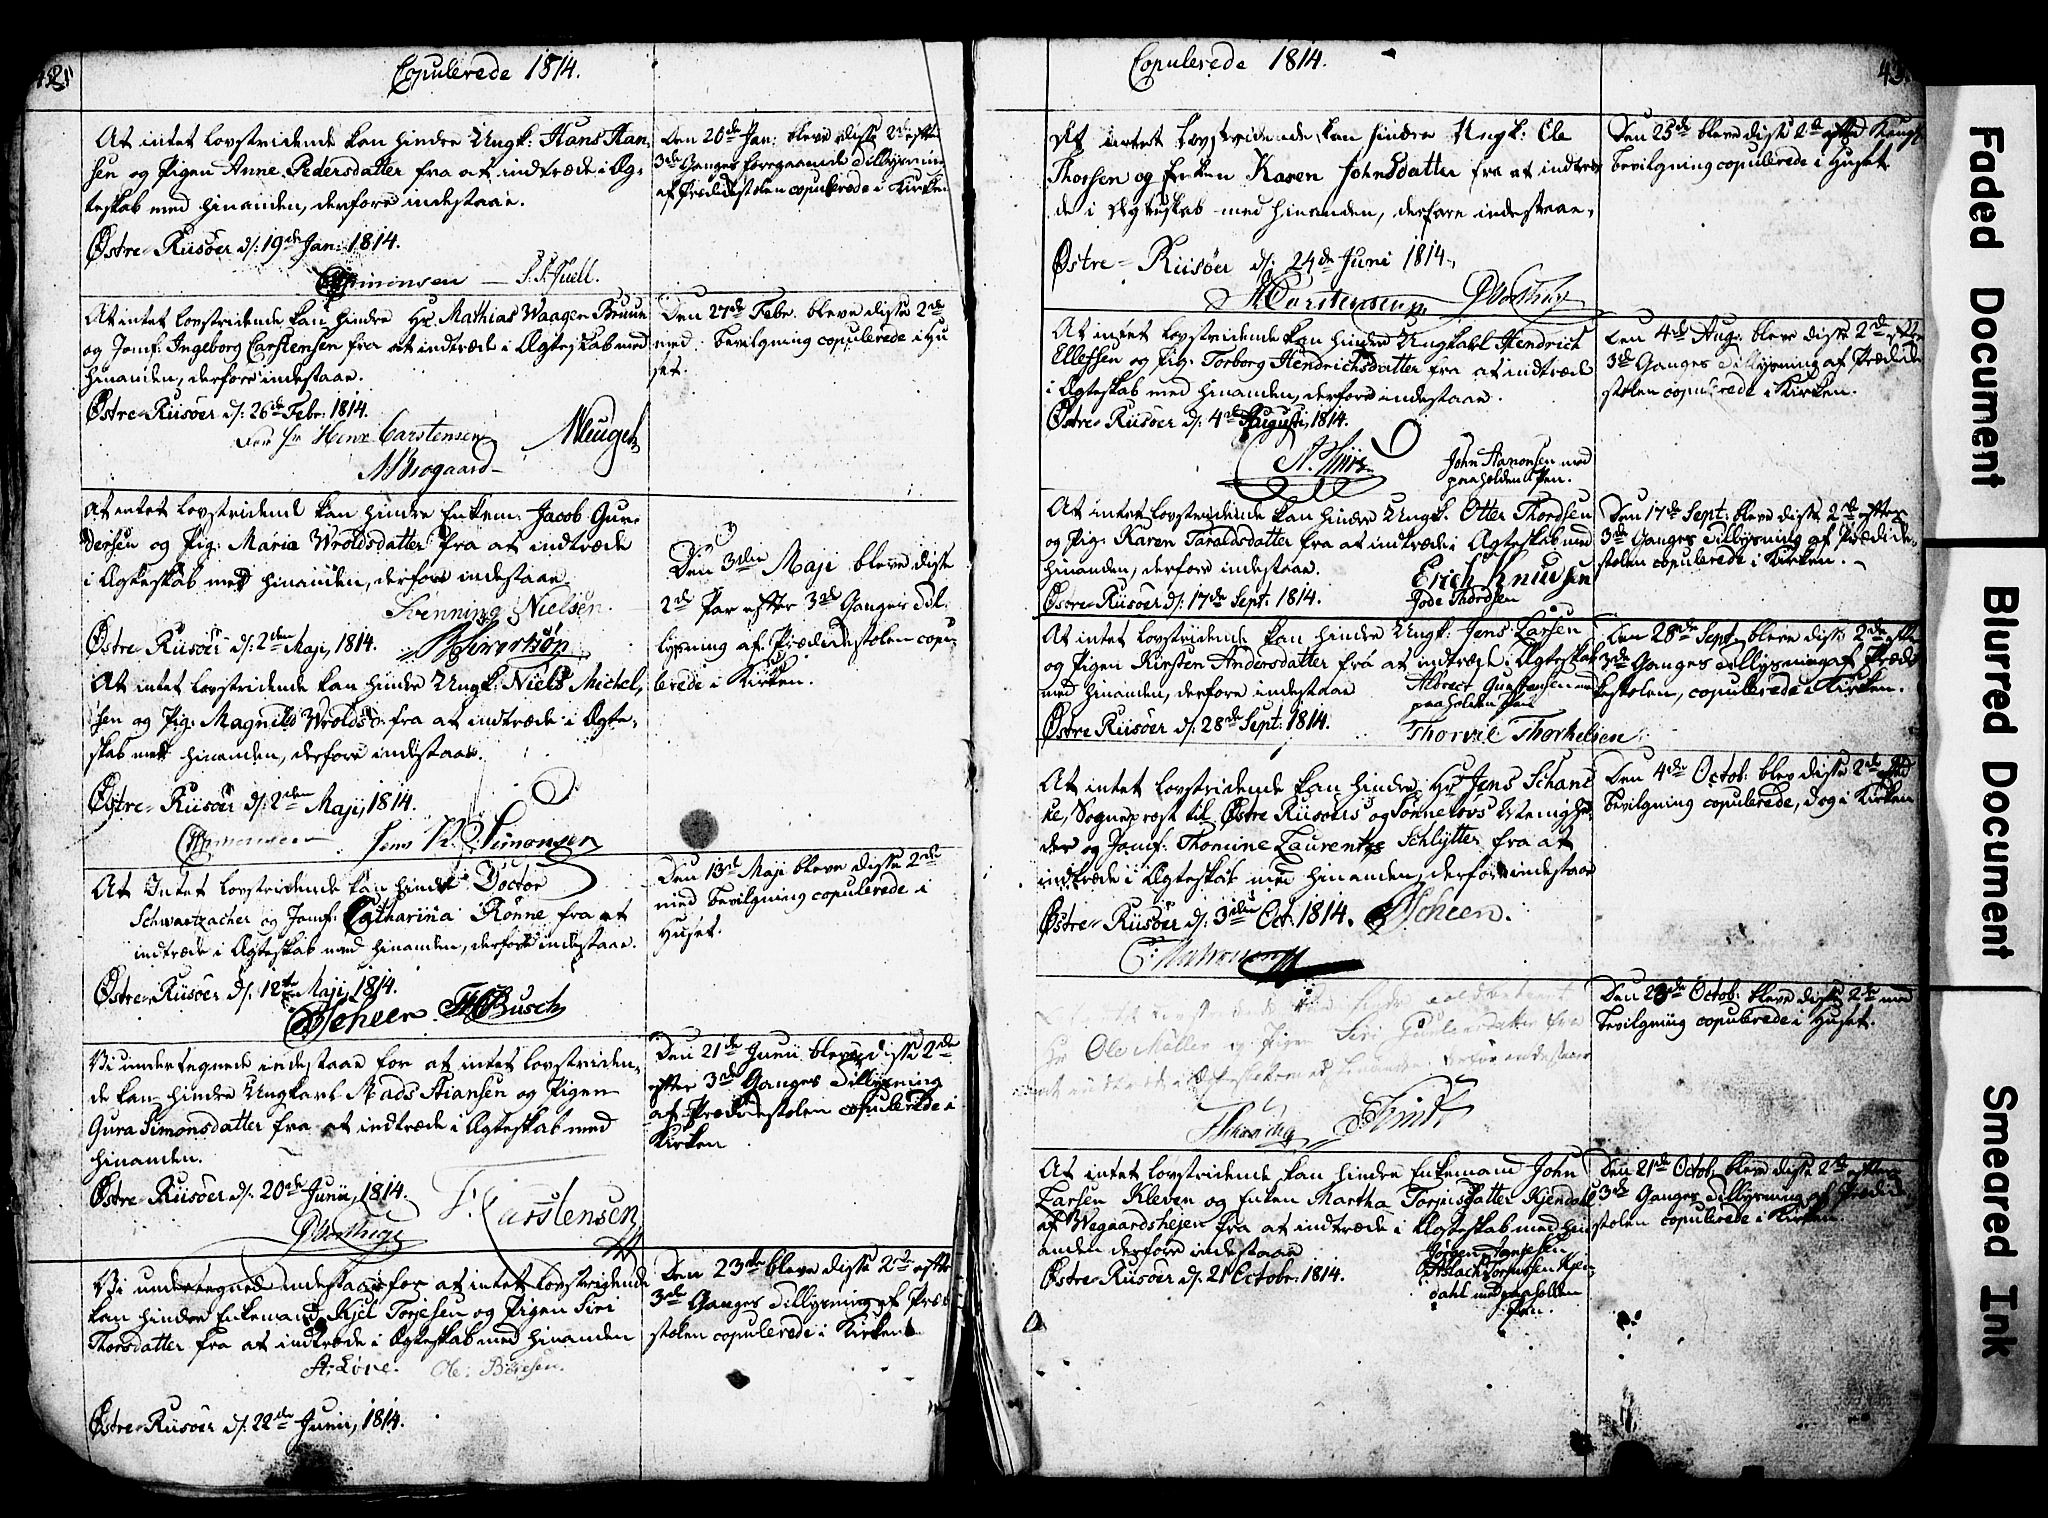 Copulerede 1814.
At intet lovstridende kan hindre Ungk: Hans Han-
sen og Pigen Anne Pedersdatter fra at indtræde i Æg-
teskab med hinanden, derfore indestaae.
Østre-Riisøer d: 19de Jan: 1814.
Simonsen — Juell.
Den 20de Jan: bleve disse 2de efter
3de Ganges foregaaende Tillysning
af Prædikestolen copulerede i Kirken
At intet lovstridende kan hindre Hr. Mathias Waagen Bruun
og Jomf: Ingeborg Carstensen fra at indtræde i Ægteskab med
hinanden, derfore indestaae.
Østre-Riisøer d: 26de Febr: 1814.
Henr Carstensen
Den 27de Febr. bleve disse 2de
med Bevilgning copulerede i Hu
set.
At intet lovstridende kan hindre Enkem: Jacob Gun-
dersen og Pig: Maria Wroldsdatter fra at indtræde
i Ægteskab med hinanden, derfore indestaae.
Svenning Nielsen.
Østre Riisøer d: 2den Maji, 1814.
Den 3die Maji bleve disse
2de Par efter 3de Ganges Til-
lysning af Prædikestolen copu-
lerede i Kirken.
At intet lovstridende kan hindre Ungk: Niels Michel-
sen og Pig: Magnild Wroldsd: fra at indtræde i Ægte-
skab med hinanden, derfore indestaae.
Østre-Riisøer d: 2den Maji, 1814.
Jens Simonsen
At Intet lovstridende kan hindre Doctor
Schwartzacher og Jomf: Catharina Rønne fra at
indtræde i Ægteskab med hinanden, derfore indestaae.
Østre-Riisøer d: 12te Maji, 1814.
Scheen Busch
Den 13de Maji bleve disse 2de
med Bevilgning copulerede i
Huset.
Vi undertegnede indestaae for at intet lovstriden-
de kan hindre Ungkarl Mads Stiansen og Pigen
Gura Simonsdatter fra at indtræde i Ægteskab med
hinanden.
Østre-Riisøer d: 20de Junii, 1814.
Carstensen
Den 21de Junii bleve disse 2de
efter 3de Ganges Tillysning
af Prædikestolen copulerede i
Kirken
Vi undertegnede indestaae for at intet lovstridende
kan hindre Enkemand Kjel Torjesen og Pigen Siri
Thorsdatter fra at indtræde i Ægteskab med hinanden
A: Løve. Ole:
Østre-Riisøer d: 22de Junii, 1814.
Den 23de bleve disse 2de efter
3de Ganges Tillysning af Præ
stolen copulerede i Kirken.
Copulerede 1814.
At intet lovstridende kan hindre Ungk: Ole
Thorsen og Enken Karen Johnsdatter fra at indtræ-
de i Ægteskab med hinanden, derfore indestaae.
Østre-Riisøer d: 24de Juni 1814.
Carstensen
Den 25de bleve disse 2de efter Kongl
Bevilgning copulerede i Huset
At intet lovstridende kan hindre Ungkarl Hendrich
Ellefsen og Pig: Torborg Hendrichsdatter fra at indtræde
i Ægteskab med hinanden, derfore indestaae.
Østre-Riisøer d: 4de Augusti, 1814.
John Aanonsen med
paaholden Pen.
Den 4de Aug: bleve disse 2de efter
3de Ganges Tillysning af Prædike
stolen copulerede i Kirken.
At intet lovstridende kan hindre Ungk. Otter Thordsen
og Pig: Karen Taraldsdatter fra at indtræde i Ægteskab med
hinanden, derfore indestaae.
Erich Knudsen
Østre-Riisøer d: 17de Sept: 1814.
Thordsen
Den 17de Sept: bleve disse 2de efter
3de Ganges Tillysning af Prædike-
stolen copulerede i Kirken.
At intet lovstridende kan hindre Ungk: Jens Larsen
og Pigen Kirsten Andersdatter fra at indtræde i Ægteskab
med hinanden, derfore indestaae
paaholden Pen
Østre Riisøer d: 28de Sept: 1814.
Thorkelsen
Den 28de Sept: bleve disse 2de efter
3de Ganges Tillysning af Prædi
kestolen, copulerede i Kirken.
At intet lovstridende kan hindre Hr Jens Schan
ke, Sogneprest til Østre Riisøers og Sønneløvs Menighe-
der og Jomf: Thomine Laurentze Schlytter fra at
indtræde i Ægteskab med hinanden, derfore indestaae
Østre-Riisøer d: 3die Oct: 1814. Scheen.
Den 4de Octob: blev disse 2de efter
Bevilgning copulerede, dog i Kirken
Hr Ole Møller og Pigen Siri fra
Den 2 de Octob: bleve disse 2de med
Bevilgning copulerede i Huset.
At intet lovstridende kan hindre Enkemand John
Larsen Kleven og Enken Martha Torjusdatter Kjendal
af Wegaardshejen fra at indtræde i Ægteskab med hin
anden derfore indestaae
Østre-Riisøer d: 21 Octobr: 1814.
Aslach Torjusen Kjen-
dahl med paaholden
Pen.
Den 21de Octob: bleve disse 2de efter
3de Ganges Tillysning af Prædike
stolen copulerede i Kirken.
Faded Document
Blurred Document
Smeared Ink